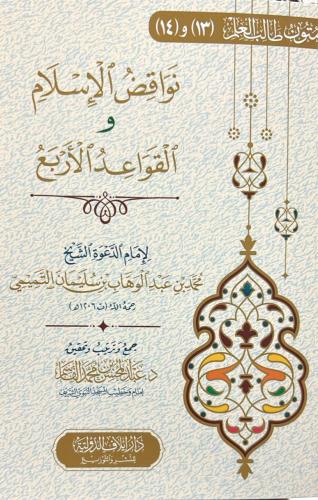 متون طالب العلم (١٣) و (١٤)
نَوَاقِضُ الْإِسْلَامِ
وَ
الْقَوَاعِدُ الْأَرْبَعُ
لِإِمَامِ الدَّعْوَةِ الشَّيْخِ
مُحَمَّدِ بْنِ عَبْدِ الْوَهَّابِ بْنِ سُلَيْمَانَ التَّمِيمِيِّ
رحمه الله (ت ١٢٠٦هـ)
جمع وترتيب وتحقيق
د. عبد المحسن بن محمد القاسم
إمام وخطيب المسجد النبوي الشريف
دار إيلاف الدولية
للنشر والتوزيع